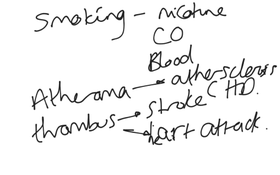 Smoking - nicotine
CO
Blood
Atherama → atherscleross
thrombus → Stroke CHD.
→ heart attack.